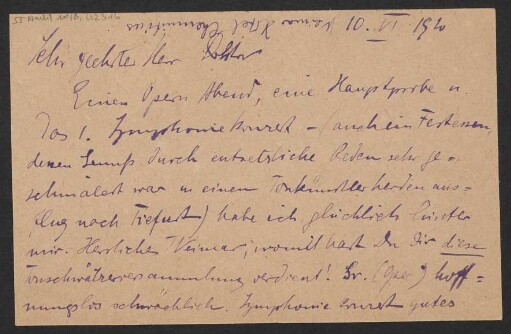 Weimar Hotel Chemnitius 10. VI 1920
Sehr geehrter Herr Doktor
Einen Opern Abend, eine Hauptprobe u.
das 1. Symphoniekonzert – (auch ein Festessen,
dessen Genuß durch entsetzliche Reden sehr ge-
schmälert war u einen Tonkünstlerherdenaus-
flug nach Tiefurt) habe ich glücklich hinter
mir. Herrliches Weimar, womit hast Du Dir diese
Tonschwätzerversammlung verdient! (Oper) hoff-
nungslos schwächlich. Symphonie konzert gutes